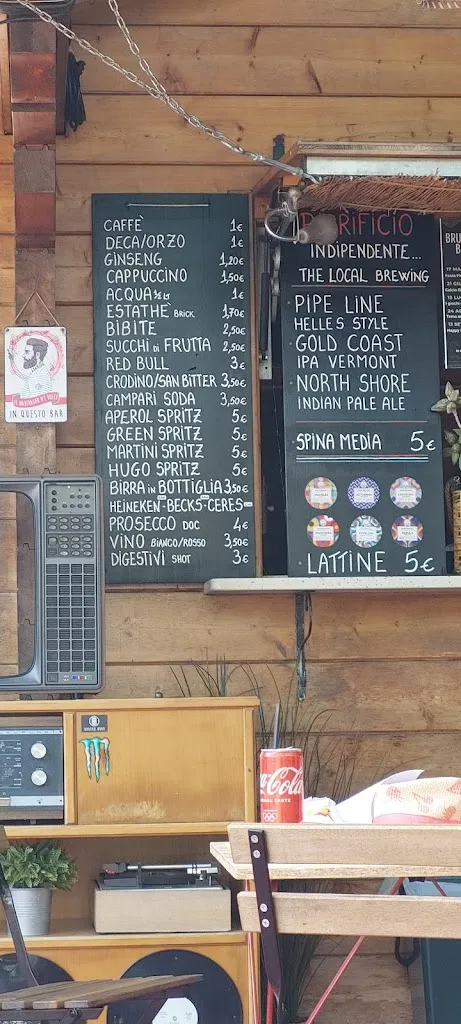 CAFFÈ 1€
DECA/ORZO 1€
GINSENG 1,20€
CAPPUCCINO 1,50€
ACQUA ½ LT 1€
ESTATHE BRICK 1,70€
BIBITE 2,50€
SUCCHI di FRUTTA 2,50€
RED BULL 3€
CRODINO/SAN BITTER 3,50€
CAMPARI SODA 3,50€
APEROL SPRITZ 5€
GREEN SPRITZ 5€
MARTINI SPRITZ 5€
HUGO SPRITZ 5€
BIRRA in BOTTIGLIA 3,50€
HEINEKEN-BECKS-CERES
PROSECCO DOC 4€
VINO BIANCO/ROSSO 3,50€
DIGESTIVI SHOT 3€
BIRRIFICIO
INDIPENDENTE...
THE LOCAL BREWING
PIPE LINE
HELLES STYLE
GOLD COAST
IPA VERMONT
NORTH SHORE
INDIAN PALE ALE
SPINA MEDIA 5€
LATTINE 5€
IN QUESTO BAR
Coca-Cola